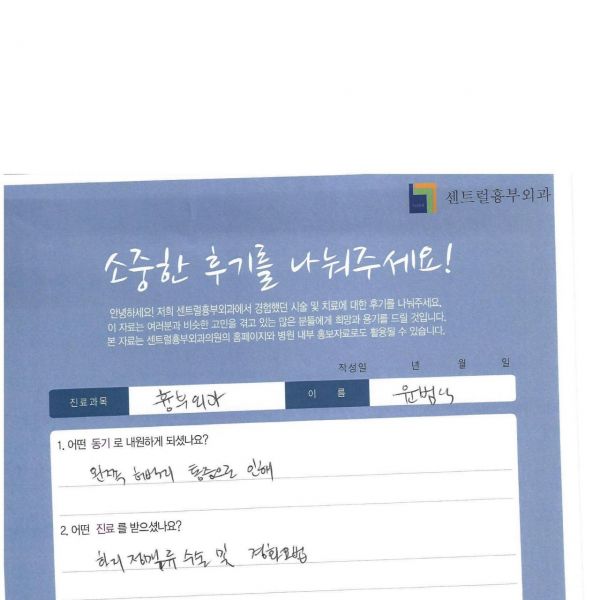 센트럴흉부외과
소중한 후기를 나눠주세요!
안녕하세요! 저희 센트럴흉부외과에서 경험했던 시술 및 치료에 대한 후기를 나눠주세요.
이 자료는 여러분과 비슷한 고민을 겪고 있는 많은 분들에게 희망과 용기를 드릴 것입니다.
본 자료는 센트럴흉부외과의원의 홈페이지와 병원 내부 홍보자료로도 활용될 수 있습니다.
작성일 년 월 일
진료과목 흉부외과 이 름 윤범
1. 어떤 동기 로 내원하게 되셨나요?
왼쪽 허벅지 통증으로 인해
2. 어떤 진료 를 받으셨나요?
하지 정맥류 수술 및 경화요법